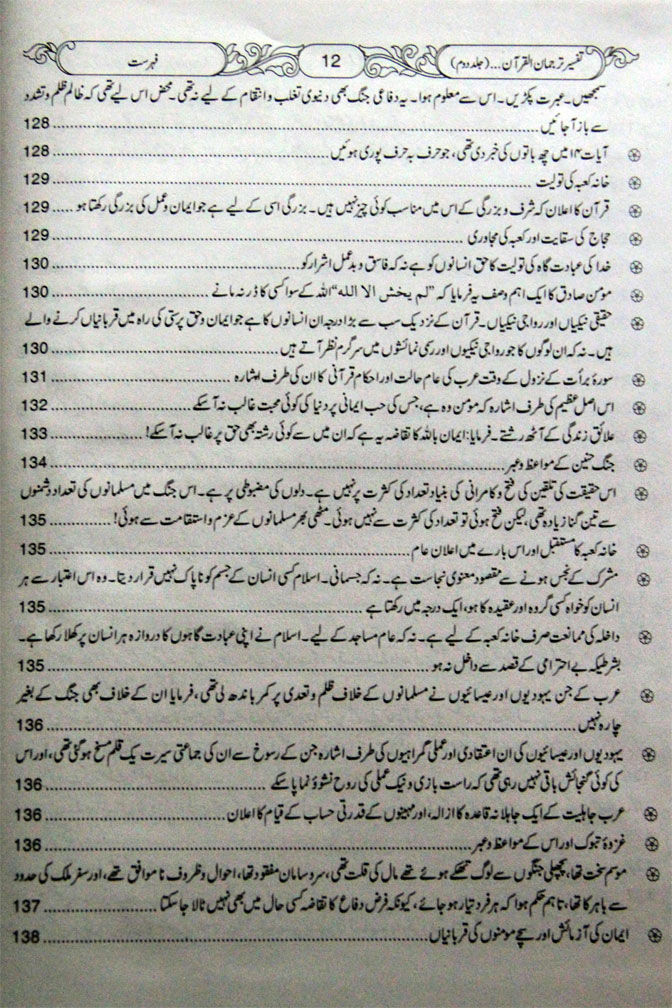 تفسیر ترجمان القرآن... (جلد دوم) 12 فہرست
سمجھیں۔ عبرت پکڑیں۔ اس سے معلوم ہوا۔ یہ دفاعی جنگ بھی دنیوی تغلب و انتقام کے لیے نہ تھی۔ محض اس لیے تھی کہ ظالم ظلم و تشدد
سے باز آ جائیں 128
آیات ۱۴ میں چھ باتوں کی خبر دی تھی، جو حرف بہ حرف پوری ہوئیں 128
خانہ کعبہ کی تولیت 129
قرآن کا اعلان کہ شرف و بزرگی کے اس میں مناسب کوئی چیز نہیں ہیں۔ بزرگی اسی کے لیے ہے جو ایمان و عمل کی بزرگی رکھتا ہو 129
حجاج کی سقایت اور کعبہ کی مجاوری 129
خدا کی عبادت گاہ کی تولیت کا حق انسانوں کو ہے نہ کہ فاسق و بدعمل اشرار کو 130
مؤمن صادق کا ایک اہم وصف یہ فرمایا کہ ”لم یخش الا اللہ“ اللہ کے سوا کسی کا ڈر نہ مانے 130
حقیقی نیکیاں اور رواجی نیکیاں۔ قرآن کے نزدیک سب سے بڑا درجہ ان انسانوں کا ہے جو ایمان و حق پرستی کی راہ میں قربانیاں کرنے والے
ہیں۔ نہ کہ ان لوگوں کا جو رواجی نیکیوں اور رسمی نمائشوں میں سرگرم نظر آتے ہیں 130
سورۂ برأت کے نزول کے وقت عرب کی عام حالت اور احکام قرآنی کا ان کی طرف اشارہ 131
اس اصل عظیم کی طرف اشارہ کہ مؤمن وہ ہے، جس کی حب ایمانی پر دنیا کی کوئی محبت غالب نہ آ سکے 132
علائق زندگی کے آٹھ رشتے۔ فرمایا: ایمان باللہ کا تقاضہ یہ ہے کہ ان میں سے کوئی رشتہ بھی حق پر غالب نہ آ سکے! 133
جنگ حنین کے مواعظ و عبر 134
اس حقیقت کی تلقین کی فتح و کامرانی کی بنیاد تعداد کی کثرت پر نہیں ہے۔ دلوں کی مضبوطی پر ہے۔ اس جنگ میں مسلمانوں کی تعداد دشمنوں
سے تین گنا زیادہ تھی، لیکن فتح ہوئی تو تعداد کی کثرت سے نہیں ہوئی۔ مٹھی بھر مسلمانوں کے عزم و استقامت سے ہوئی! 135
خانہ کعبہ کا مستقبل اور اس بارے میں اعلان عام 135
مشرک کے نجس ہونے سے مقصود معنوی نجاست ہے۔ نہ کہ جسمانی۔ اسلام کسی انسان کے جسم کو ناپاک نہیں قرار دیتا۔ وہ اس اعتبار سے ہر
انسان کو خواہ کسی گروہ اور عقیدہ کا ہو، ایک درجہ میں رکھتا ہے 135
داخلہ کی ممانعت صرف خانہ کعبہ کے لیے ہے۔ نہ کہ عام مساجد کے لیے۔ اسلام نے اپنی عبادت گاہوں کا دروازہ ہر انسان پر کھلا رکھا ہے۔
بشرطیکہ بے احترامی کے قصد سے داخل نہ ہو 135
عرب کے جن یہودیوں اور عیسائیوں نے مسلمانوں کے خلاف ظلم و تعدی پر کمر باندھ لی تھی، فرمایا ان کے خلاف بھی جنگ کے بغیر
چارہ نہیں 136
یہودیوں اور عیسائیوں کی ان اعتقادی اور عملی گمراہیوں کی طرف اشارہ جن کے رسوخ سے ان کی جماعتی سیرت یک قلم مسخ ہو گئی تھی، اور اس
کی کوئی گنجائش باقی نہیں رہی تھی کہ راست بازی و نیک عملی کی روح نشوونما پا سکے 136
عرب جاہلیت کے ایک جاہلانہ قاعدہ کا ازالہ، اور مہینوں کے قدرتی حساب کے قیام کا اعلان 136
غزوۂ تبوک اور اس کے مواعظ و عبر 136
موسم سخت تھا، پچھلی جنگوں سے لوگ تھکے ہوئے تھے مال کی قلت تھی، سر و سامان مفقود تھا، احوال و ظروف ناموافق تھے، اور سفر ملک کی حدود
سے باہر کا تھا، تاہم حکم ہوا کہ ہر فرد تیار ہو جائے، کیونکہ فرض دفاع کا تقاضہ کسی حال میں بھی نہیں ٹالا جا سکتا 137
ایمان کی آزمائش اور سچے مومنوں کی قربانیاں 138